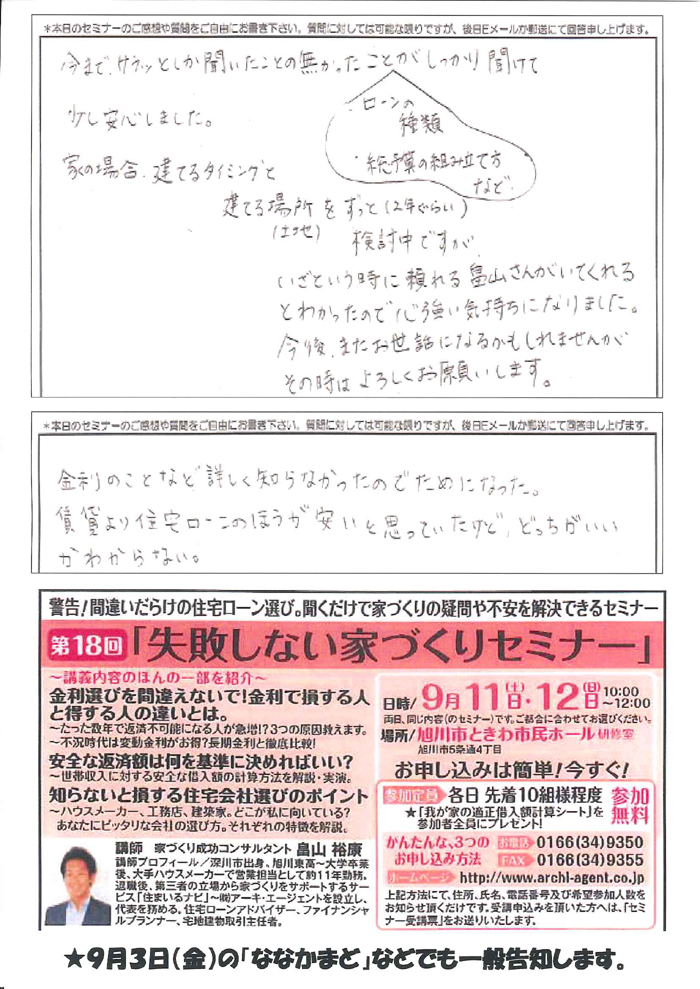 *本日のセミナーのご感想や質問をご自由にお書き下さい。質問に対しては可能な限りですが、後日Eメールか郵送にて回答申し上げます。
今まで、サラッとしか聞いたことの無かったことがしっかり聞けて
少し安心しました。
・ローンの
種類
・総予算の組み立て方
など
家の場合、建てるタイミングと
建てる場所をずっと(2年ぐらい)
(土地)
検討中ですが
いざという時に頼れる畠山さんがいてくれる
とわかったので心強い気持ちになりました。
今後、またお世話になるかもしれませんが
その時はよろしくお願いします。
*本日のセミナーのご感想や質問をご自由にお書き下さい。質問に対しては可能な限りですが、後日Eメールか郵送にて回答申し上げます。
金利のことなど詳しく知らなかったのでためになった。
賃貸より住宅ローンのほうが安いと思っていたけど、どっちがいい
かわからない。
警告!間違いだらけの住宅ローン選び。聞くだけで家づくりの疑問や不安を解決できるセミナー
第18回「失敗しない家づくりセミナー」
〜講義内容のほんの一部を紹介〜
金利選びを間違えないで!金利で損する人
と得する人の違いとは。
〜たった数年で返済不可能になる人が急増!?3つの原因教えます。
〜不況時代は変動金利がお得?長期金利と徹底比較!
安全な返済額は何を基準に決めればいい?
〜世帯収入に対する安全な借入額の計算方法を解説・実演。
知らないと損する住宅会社選びのポイント
〜ハウスメーカー、工務店、建築家。どこが私に向いている?
あなたにピッタリな会社の選び方。それぞれの特徴を解説。
講師 家づくり成功コンサルタント 畠山 裕康
講師プロフィール/深川市出身、旭川東高〜大学卒業
後、大手ハウスメーカーで営業担当として約11年勤務。
退職後、第三者の立場から家づくりをサポートするサー
ビス「住まいるナビ」〜㈱アーキ・エージェントを設立し、
代表を務める。住宅ローンアドバイザー、ファイナンシャ
ルプランナー、宅地建物取引主任者。
日時/9月11(土)日・12(日)日 10:00
〜12:00
両日、同じ内容(のセミナー)です。ご都合に合わせてお選びください。
場所/旭川市ときわ市民ホール 研修室
旭川市5条通4丁目
お申し込みは簡単!今すぐ!
参加定員 各日 先着10組様程度
★「我が家の適正借入額計算シート」を
参加者全員にプレゼント!
参加
無料
かんたんな、3つの
お申し込み方法
お電話 0166(34)9350
FAX 0166(34)9355
ホームページ http://www.archi-agent.co.jp
上記方法にて、住所、氏名、電話番号及び希望参加人数を
お知らせ頂くだけです。受講申込みを頂いた方へは、「セミ
ナー受講票」をお送りいたします。
★9月3日(金)の「ななかまど」などでも一般告知します。